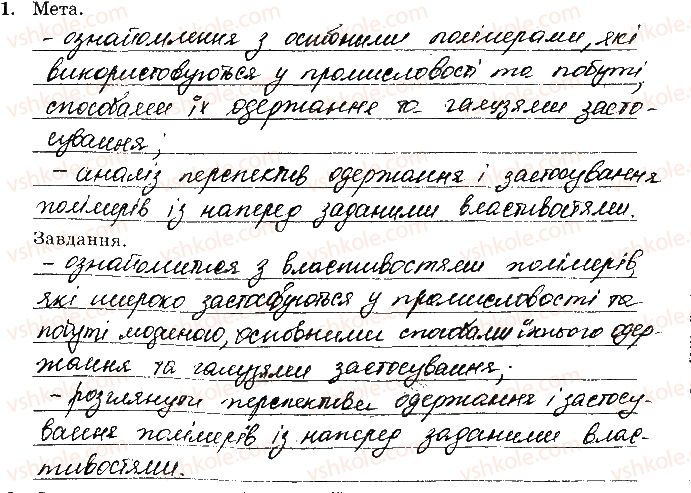 1. Мета.
- ознайомлення з основними полімерами, які
використовуються у промисловості та побуті,
способами їх одержання та галузями засто-
сування;
- аналіз перспектив одержання і застосування
полімерів із наперед заданими властивостями.
Завдання.
- ознайомитися з властивостями полімерів,
які широко застосовуються у промисловості та
побуті людиною, основними способами їхнього одер-
жання та галузями застосування;
- розглянути перспективи одержання і застосу-
вання полімерів із наперед заданими влас-
тивостями.